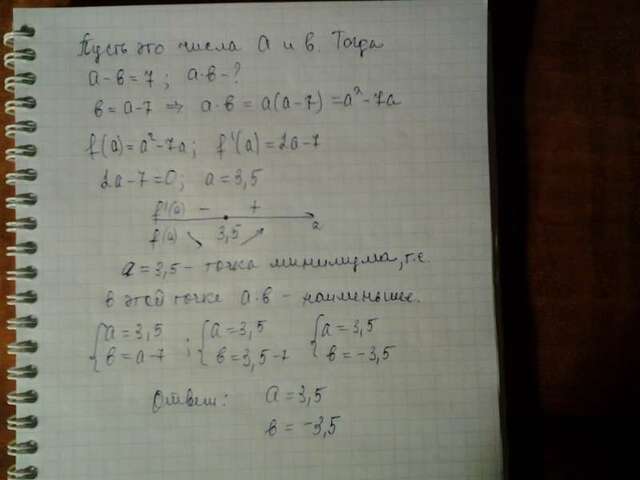 Пусть это числа а и в. Тогда
а-в=7; а·в-?
в=а-7 ⇒ а·в=а(а-7)=а²-7а
f(a)=a²-7a; f'(a)=2a-7
2a-7=0; a=3,5
f'(a) - +
f(a) ↘ 3,5 ↗ a
а=3,5- точка минимума, т.е.
в этой точке а·в - наименьшее.
{а=3,5 ; {а=3,5 {а=3,5
{в=а-7 {в=3,5-7 {в=-3,5
Ответ: а=3,5
в=-3,5